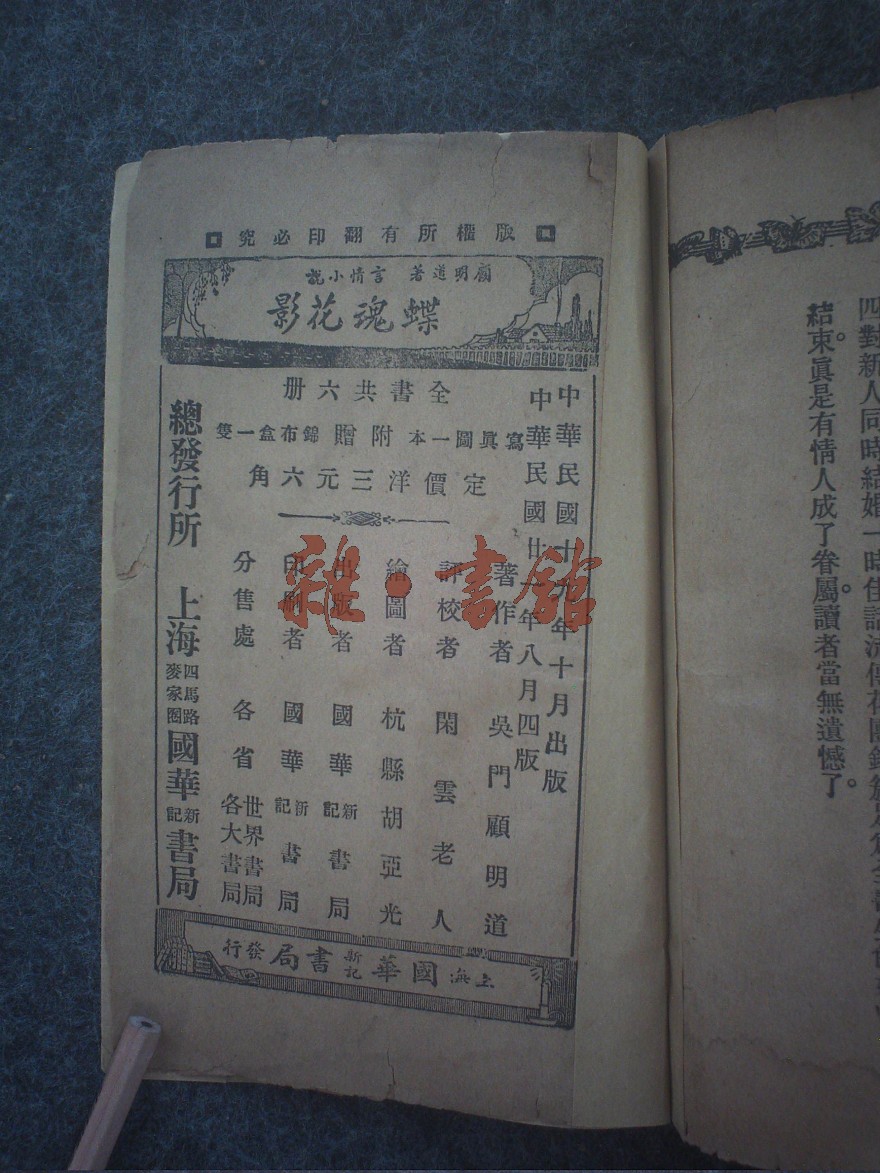 四對新人同時結婚一時佳話流傳花團錦簇
結束。眞是有情人成了眷屬。讀者當無遺憾了。
版權所有翻印必究
顧明道著 言情小說
蝶魂花影
中華民國十九年十月出版
中華民國廿一年八月四版
全書共六册
寫眞圖一本 附贈 錦布盒一隻
定價洋三元六角
著作者 吳門顧明道
評校者 閑雲老人
繪圖者 杭縣胡亞光
出版者 國華新記書局
印刷者 國華新記書局
分售處 各省世界書局各大書局
總發行所 上海四馬路麥家圈國華新記書局
上海國華新記書局發行
雜·書館